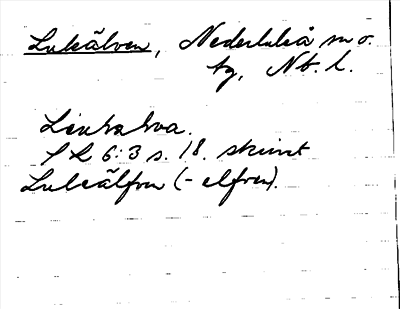 Luleälven, Nederluleå m o.
tg, Nb. l.
SL 6:3 s. 18. skrivet
Luleälfven (-elfven).